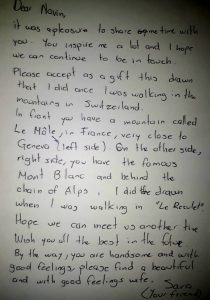 Dear Navin,
it was a pleasure to share some time with
you. You inspire me a lot and I hope
we can continue to be in touch.
Please accept as a gift this drawn
that I did once I was walking in the
mountains in Switzerland.
In front you have a mountain called
Le Môle, in France, very close to
Geneva (left side). On the other side,
right side, you have the famous
Mont Blanc and behind the
chain of Alps. I did the drawn
when I was walking in "Le
Hope we can meet us another time
Wish you all the best in the
By the way, you are handsome and with
good feelings, please find a beautiful
and with good feelings wife. Sara
(Your friend)